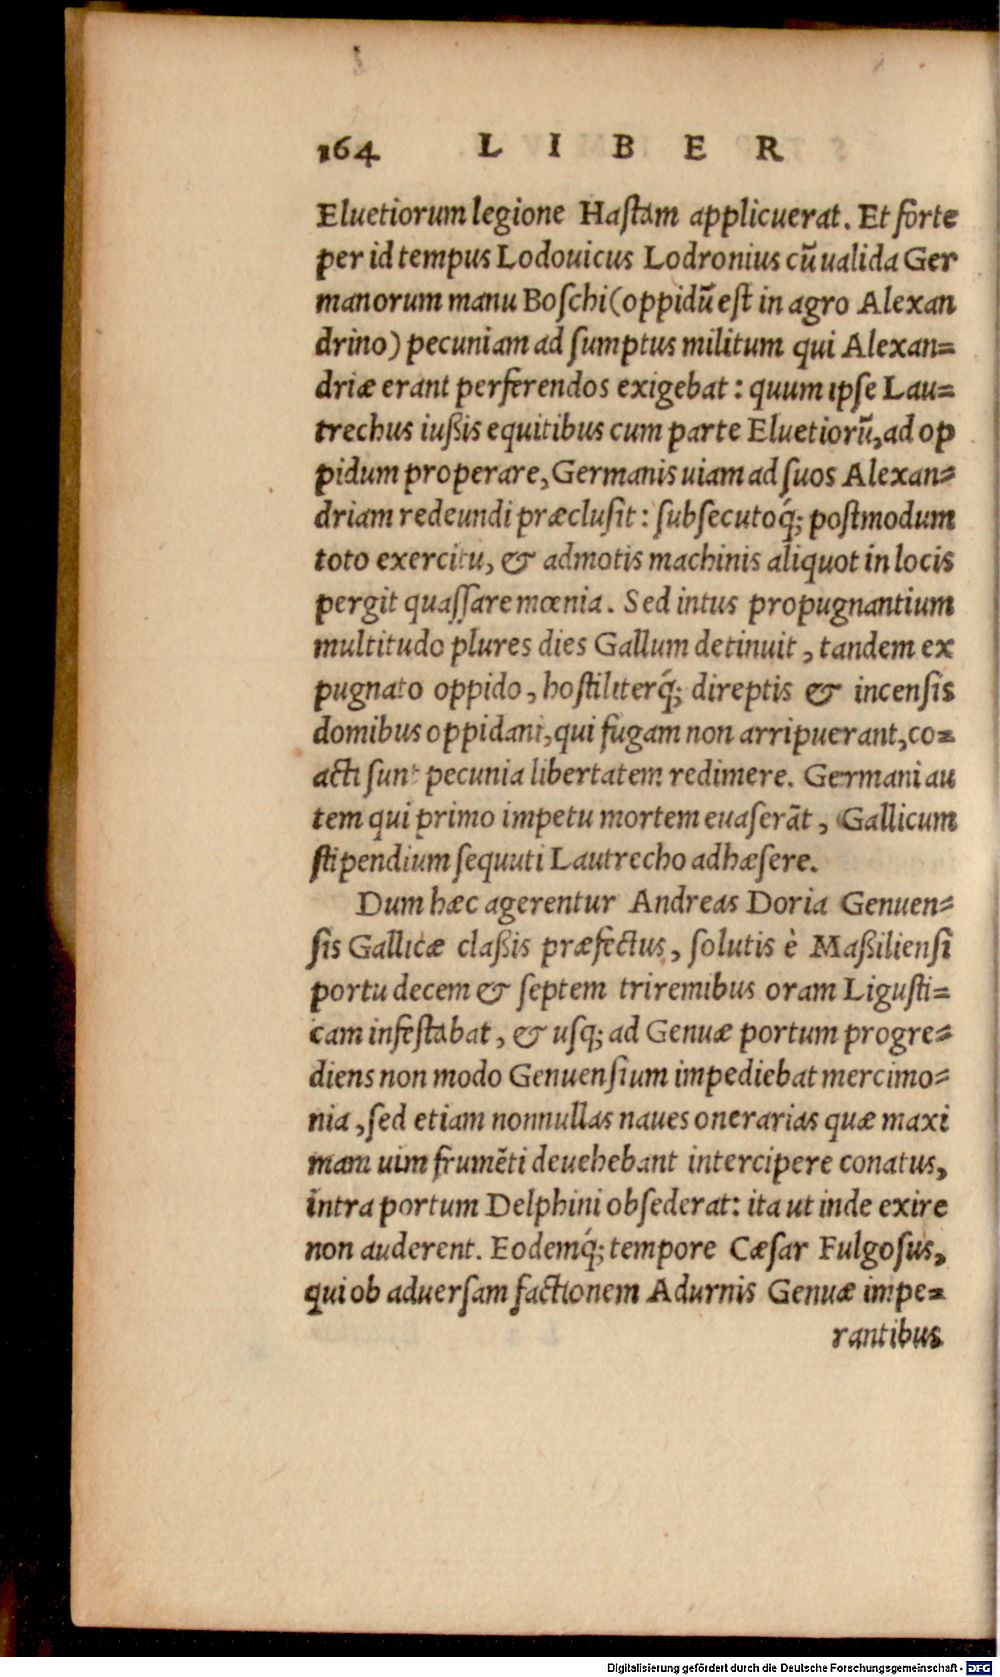 164 LIBER
Eluetiorum legione Hastam applicuerat. Et forte
per id tempus Lodouicus Lodronius cū ualida Ger
manorum manu Boschi (oppidū est in agro Alexan
drino) pecuniam ad sumptus militum qui Alexan=
driæ erant perferendos exigebat: quum ipse Lau=
trechus iußis equitibus cum parte Eluetiorū, ad op
pidum properare, Germanis uiam ad suos Alexan=
driam redeundi præclusit: subsecutoq́; postmodum
toto exercitu, & admotis machinis aliquot in locis
pergit quassare mœnia. Sed intus propugnantium
multitudo plures dies Gallum detinuit, tandem ex
pugnato oppido, hostiliterq́; direptis & incensis
domibus oppidani, qui fugam non arripuerant, co=
acti sunt pecunia libertatem redimere. Germani au
tem qui primo impetu mortem euaserāt, Gallicum
stipendium sequuti Lautrecho adhæsere.
Dum hæc agerentur Andreas Doria Genuen=
sis Gallicæ claßis præfectus, solutis è Maßiliensi
portu decem & septem triremibus oram Ligusti=
cam infestabat, & usq; ad Genuæ portum progre=
diens non modo Genuensium impediebat mercimo=
nia, sed etiam nonnullas naues onerarias quæ maxi
mam uim frumēti deuehebant intercipere conatus,
intra portum Delphini obsederat: ita ut inde exire
non auderent. Eodemq́; tempore Cæsar Fulgosus,
qui ob aduersam factionem Adurnis Genuæ impe=
rantibus
Digitalisierung gefördert durch die Deutsche Forschungsgemeinschaft - DFG